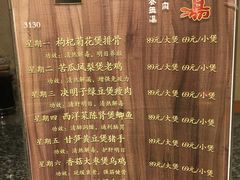 湯
3130
星期一 枸杞菊花煲排骨 89元/大煲 69元/小煲
功效：清热解毒、明目养
星期二 苦瓜凤梨煲老鸡 89元/大煲 69元/小煲
功效：清热解毒、增强免疫力
星期三 决明子绿豆煲瘦肉 89元/大煲 69元/小煲
功效：清肝明目、解毒
星期四 西洋菜陈肾煲鲫鱼 89元/大煲 69元/小煲
功效：清热润肺、
星期五 甘笋黄豆煲猪手 89元/大煲 69元/小煲
功效：清热解毒、
星期六 香菇大枣煲乌鸡 89元/大煲 69元/小煲
功效：